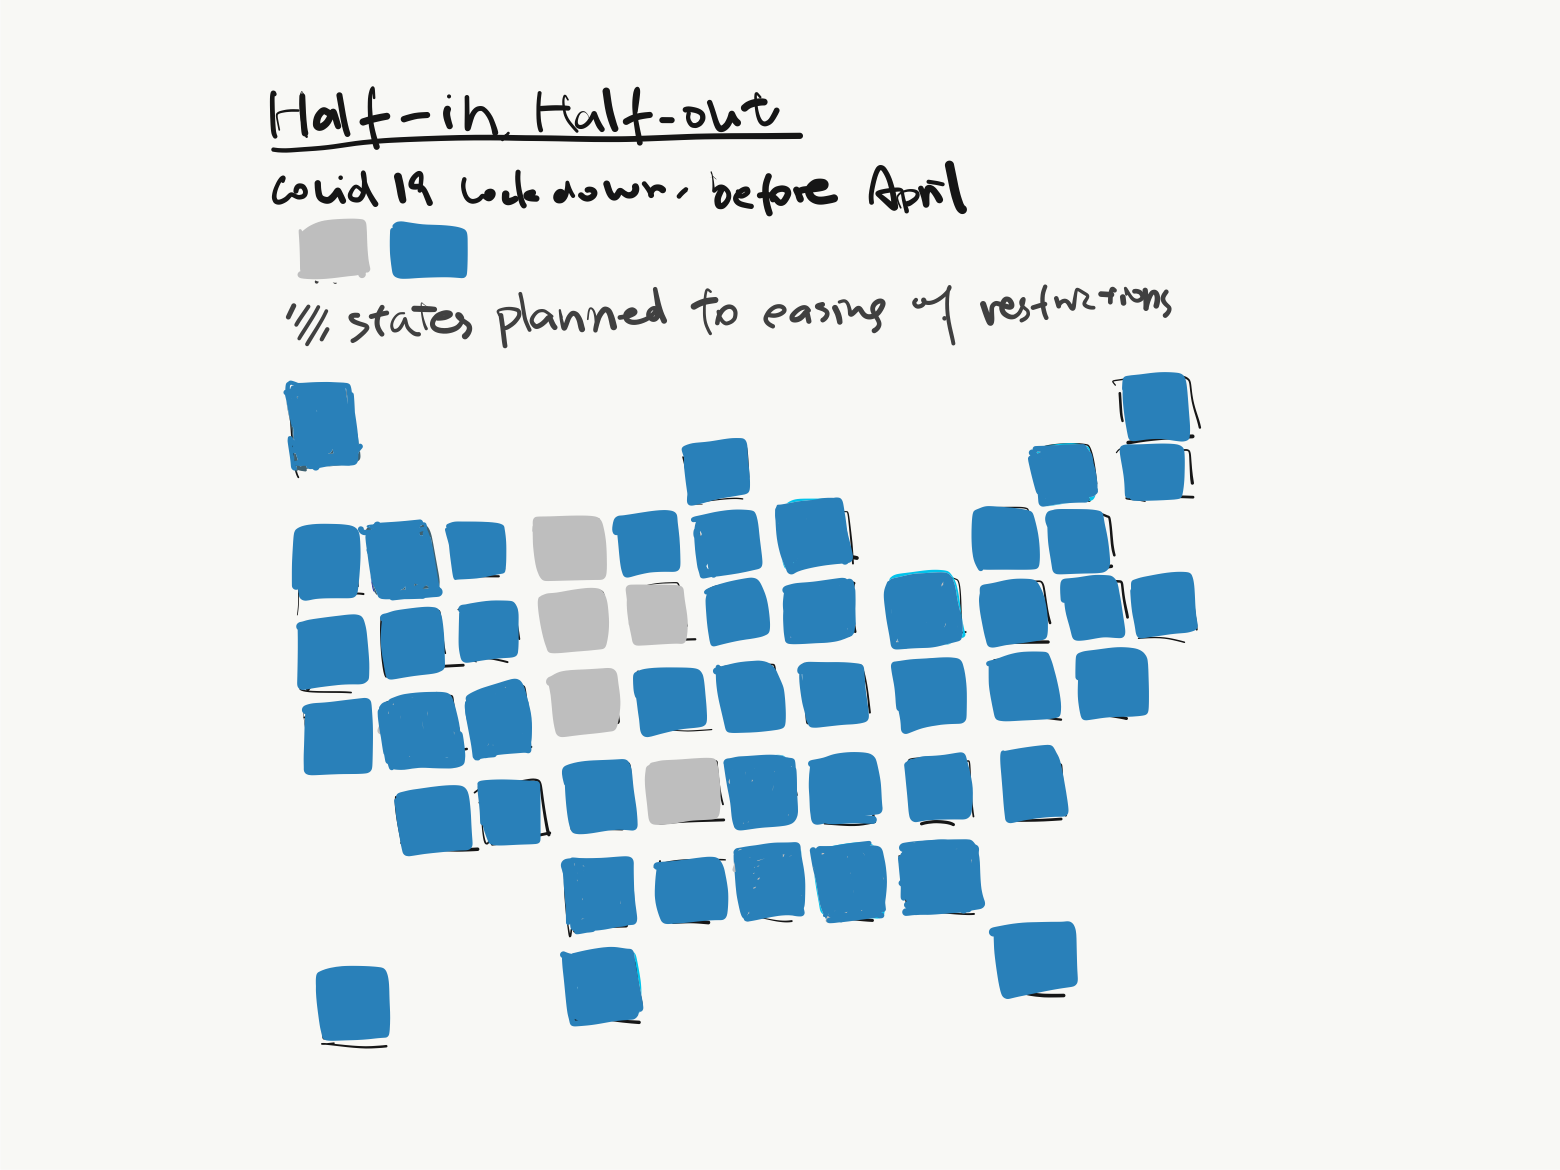 Half-in, Half-out
Covid 19 lockdown, before April
states planned to easing of restrictions